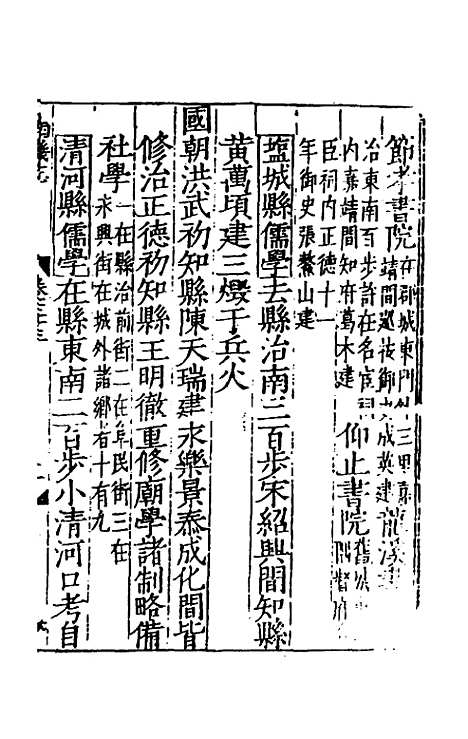 節孝書院在郡城東門外三里嘉
靖間巡按御史成英建龍溪書
治東南百步許在名宦祠
內嘉靖間知府葛木建仰止書院舊
臣祠內正德十一
年御史張鰲山建
塩城縣儒學去縣治南三百步宋紹興間知縣
黃萬頃建三燬于兵火
國朝洪武初知縣陳天瑞建永樂景泰成化間皆
修治正德初知縣王明徹重修廟學諸制略備
社學一在縣治前街二在阜民街三在
來興街在城外諸鄉者十有九
清河縣儒學在縣東南二百步小清河口考自